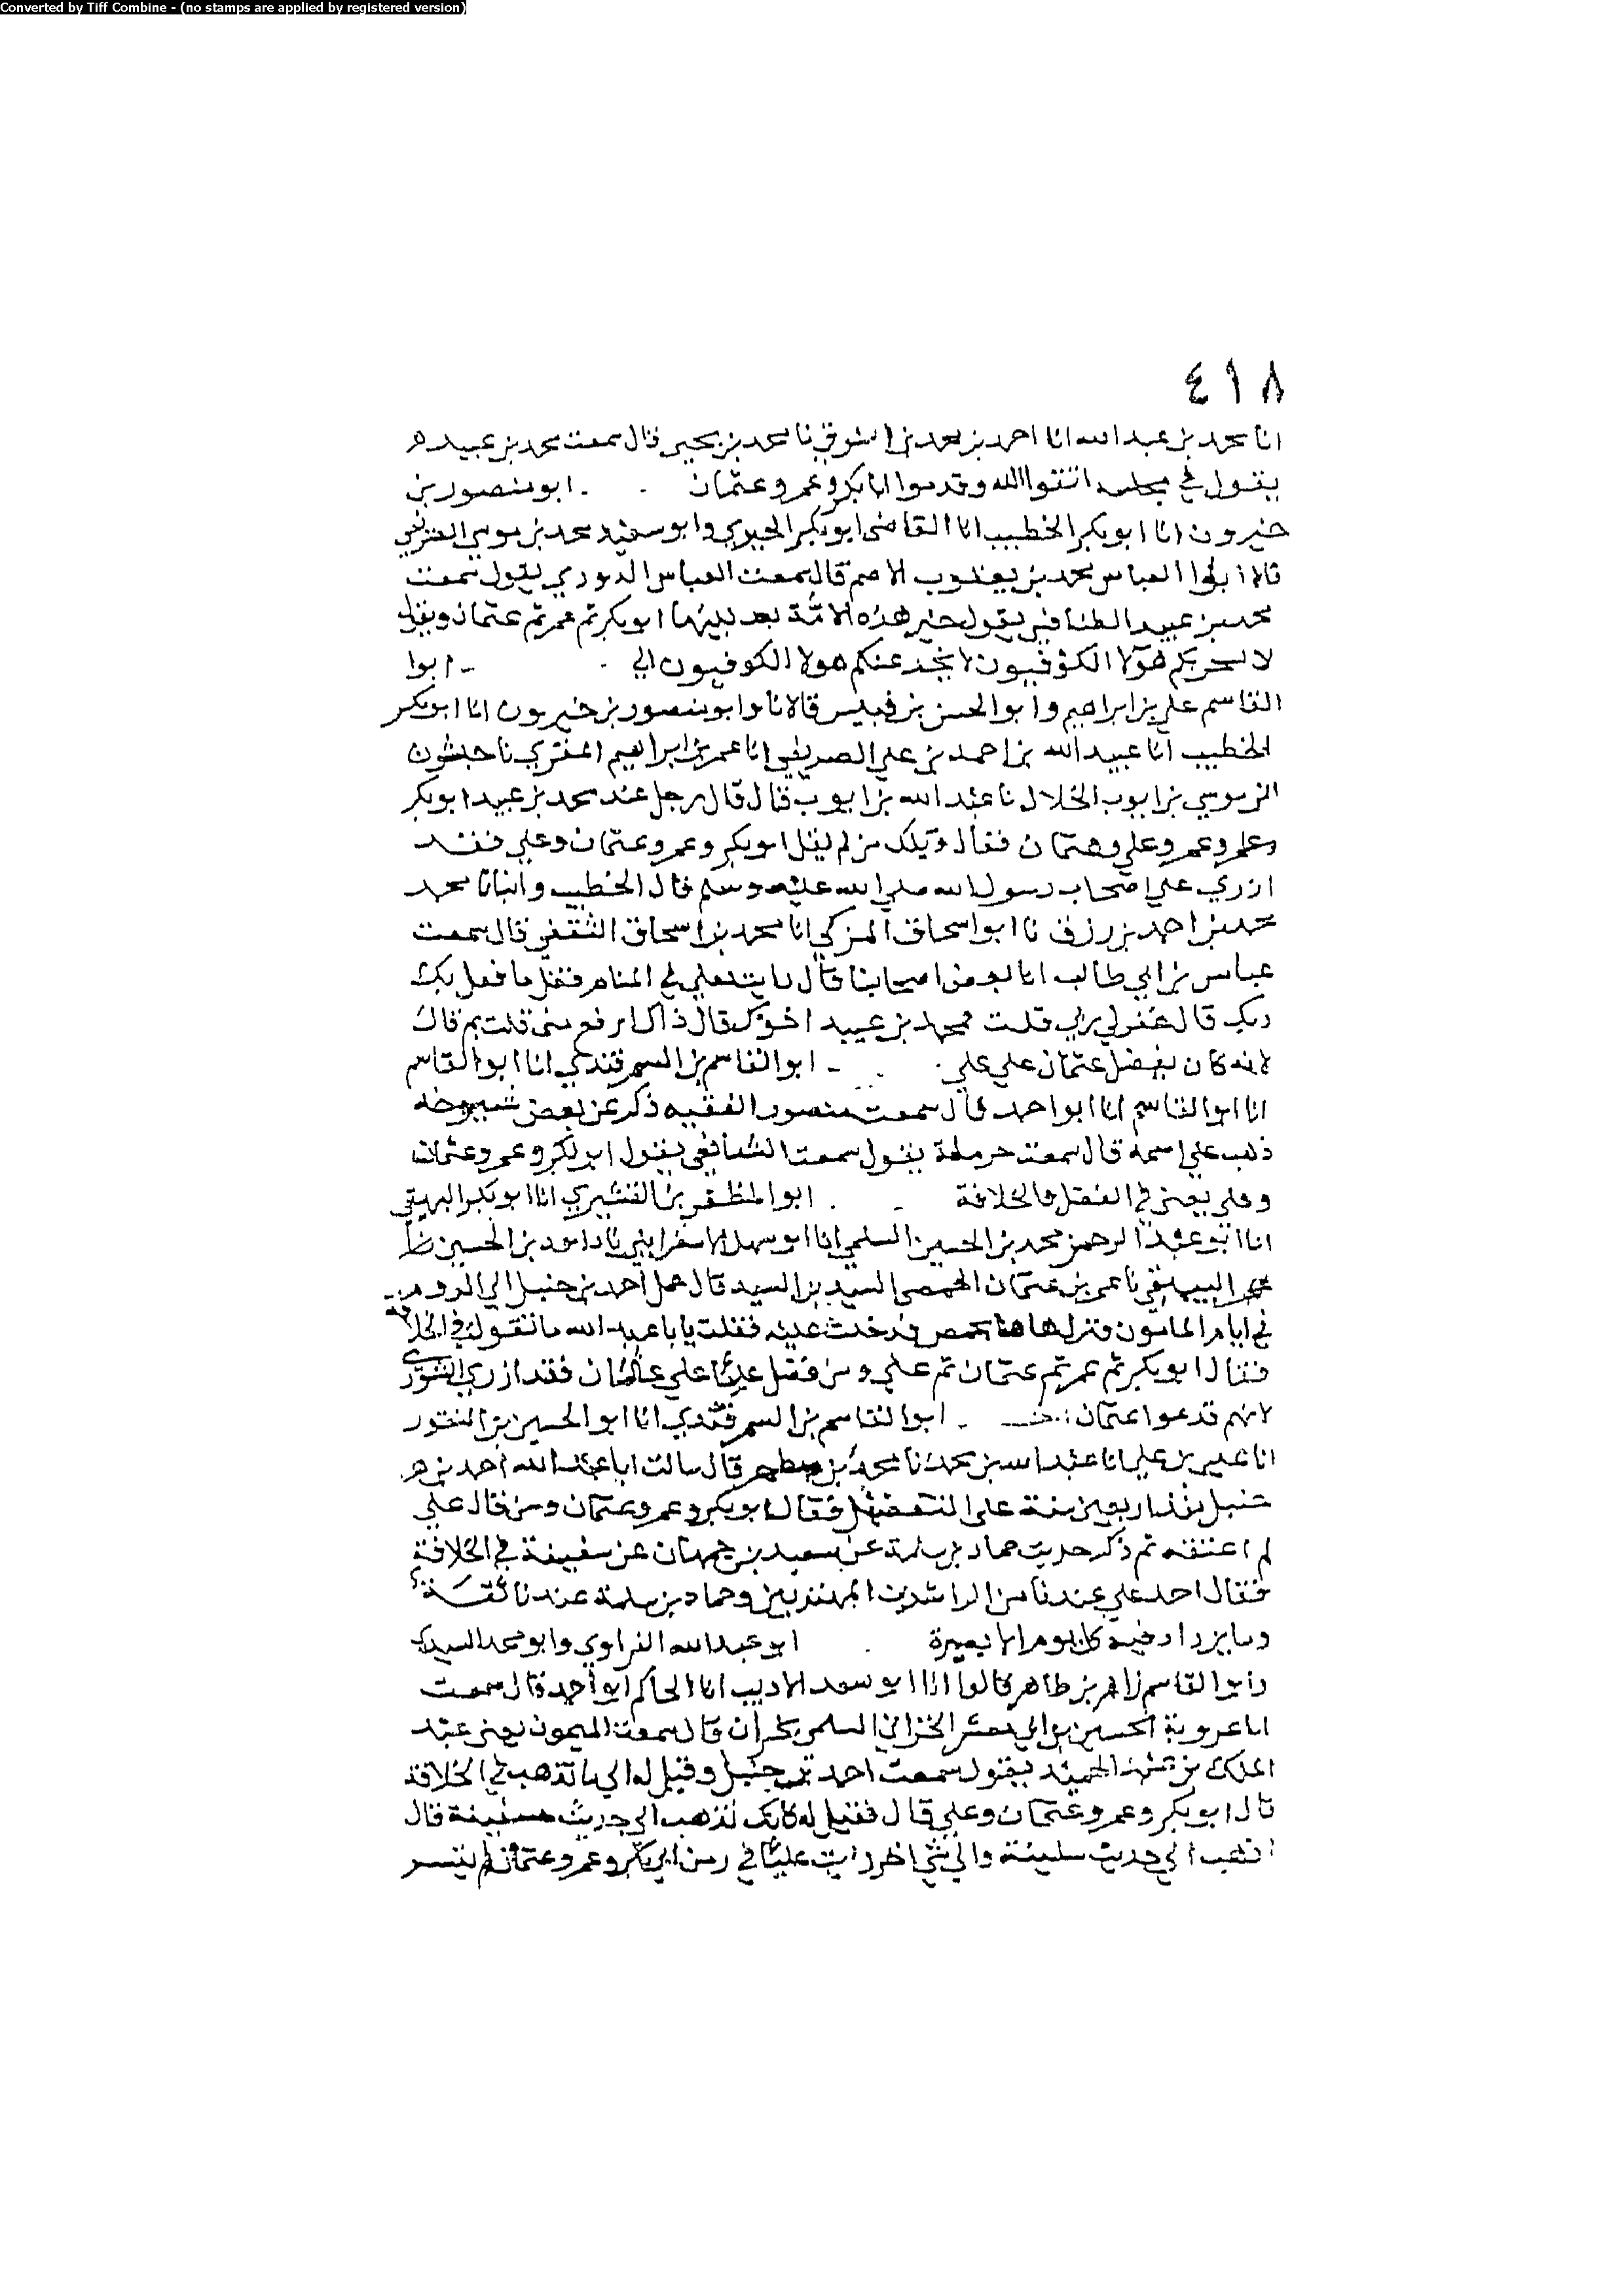 Converted by Tiff Combine - (no stamps are applied by registered version)
٤١٨
انا محمد بن عبد الله انا احمد بن محمد بن الشرقي نا محمد بن يحيى قال سمعت محمد بن عبيد
يقول في مجلسه اتقوا الله وقدموا ابا بكر وعمر وعثمان . ـ ابو منصور بن
خيرون انا ابو بكر الخطيب انا القاضي ابو بكر الحيري وابو سعيد محمد بن موسى الصيرفي
قالا العباس محمد بن يعقوب الاصم قال سمعت العباس الدوري يقول سمعت
محمد بن عبيد الطنافسي يقول خير هذه الامة بعد نبيها ابو بكر ثم عمر ثم عثمان ويقول
لا هولا الكوفيون لا يخدعنكم هولا الكوفيون ـ ابوا
القاسم علي بن ابراهيم وابو الحسن بن قبيس قالا نا وابو منصور بن خيرون انا ابو بكر
الخطيب انا عبيد الله بن احمد بن علي الصيرفي انا عمر بن ابراهيم المقري نا حبشون
بن موسى بن ايوب الخلال نا عبد الله بن ايوب قال قال رجل عند محمد بن عبيد ابو بكر
وعمر وعلي وعثمان فقال ويلك من لم يقل ابو بكر وعمر وعثمان وعلي فقد
ازري على اصحاب رسول الله صلى الله عليه وسلم قال الخطيب وانبانا محمد
محمد بن احمد بن رزق نا ابو اسحاق المزكي انا محمد بن اسحاق الثقفي قال سمعت
عباس بن ابي طالب انا بعض اصحابنا قال رايت يعلي في المنام فقلت ما فعل بك
ربك قال غفر لي ربي قلت محمد بن عبيد اخوك قال ذاك ارفع مني قلت بم قال
لانه كان يفضل عثمان على علي . ـ ابو القاسم بن السمرقندي انا ابو القاسم
انا ابو القاسم انا ابو احمد قال سمعت منصور الفقيه ذكر عن بعض شيوخه
ذهب علي اسمه قال سمعت حرملة يقول سمعت الشافعي يقول ابو بكر وعمر وعثمان
وعلي يعني في الفضل والخلافة ـ . ابو المظفر بن القشيري انا ابو بكر البيهقي
انا ابو عبد الرحمن محمد بن الحسين السلمي انا ابو سهل الاسفرايني نا داود بن الحسين
البيهقي نا عمر بن عثمان الحمصي السيد بن السيد قال حمل احمد بن حنبل الى الروم
في ايام المامون ونزل هاهنا بحمص فدخلت عليه فقلت يا با عبد الله ما تقول في الخلافة
فقال ابو بكر ثم عمر ثم عثمان ثم علي ومن فضل عليا على عثمان فقد ازري بالشورى
لانهم قدموا عثمان . ـ ابو القاسم بن السمرقندي انا ابو الحسين بن النقور
انا عيسى بن علي انا عبد الله بن محمد نا محمد بن مطهر قال سالت ابا عبد الله احمد بن
حنبل منذ اربعين سنة على التفضيل فقال ابو بكر وعمر وعثمان ومن قال علي
لم اعنفه ثم ذكر حديث حماد بن سلمة عن سعيد بن جمهان عن سفينة في الخلافة
فقال احمد علي عندنا من الراشدين المهديين وحماد بن سلمة عندنا ثقة
وما يزداد فيه كل يوم الا بصيرة . ابو عبد الله الفراوي وابو محمد السيدي
وابو القاسم زاهر بن طاهر قالوا انا ابو سعد الاديب انا الحاكم ابو احمد قال سمعت
ابا عروبة الحسين بن ابي معشر الحراني السلمي بحران قال سمعت الميموني يعني عبد
الملك بن عبد الحميد يقول سمعت احمد بن حنبل وقيل له الى ما تذهب في الخلافة
قال ابو بكر وعمر وعثمان وعلي قال فقيل له كانك تذهب الى حديث سفينة قال
اذهب الى حديث سفينة والى شي اخر رايت عليا في زمن ابي بكر وعمر وعثمان لم يتسم